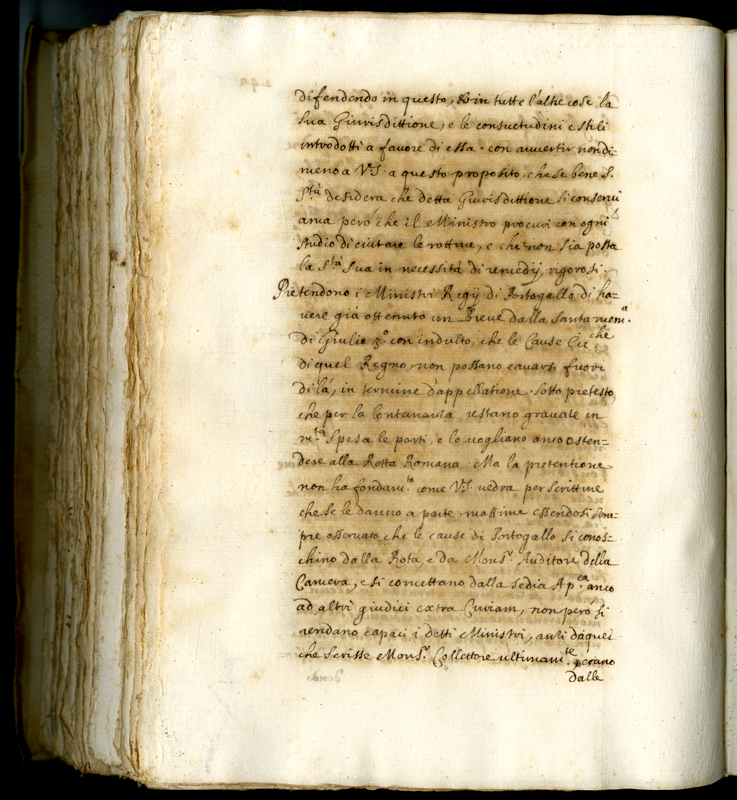 difendendo in questo, & in tutte l'altre cose la
sua Giurisdittione, e le consuetudini e stili
introdotti a favore di essa. con avvertir nondi-
meno a V.S. a questo proposito, che se bene S.
S.tà desidera che detta Giurisdittione si conservi
ama però che il Ministro procuri con ogni
studio di evitare le rotture, e che non sia posta
la S.tà Sua in necessità di remedij rigorosi.
Pretendono i Ministri Regij di Portogallo di ha-
vere già ottenuto un Breve dalla santa mem.a
di Giulio 3.o con indulto, che le Cause Ecc.che
di quel Regno non possano cavarsi fuori
di là, in termine d'appellatione. Sotto pretesto
che per la lontananza restano gravate in
m.ta spesa le parti, e lo vogliano anco esten-
dere alla Rotta Romana. Ma la pretentione
non ha fondam.to come V.S. vedrà per scritture
che se le danno a parte, massime essendosi sem-
pre osservato, che le cause di Portogallo si conos-
chino dalla Rota, e da Mons.r Auditore della
Camera, e si comettano dalla sedia Ap.ca anco
ad altri giudici extra Curiam, non però si
rendano capaci i detti Ministri, anzi da quei
che scrisse Mons.r Collettore ultimam.te erano
dalle